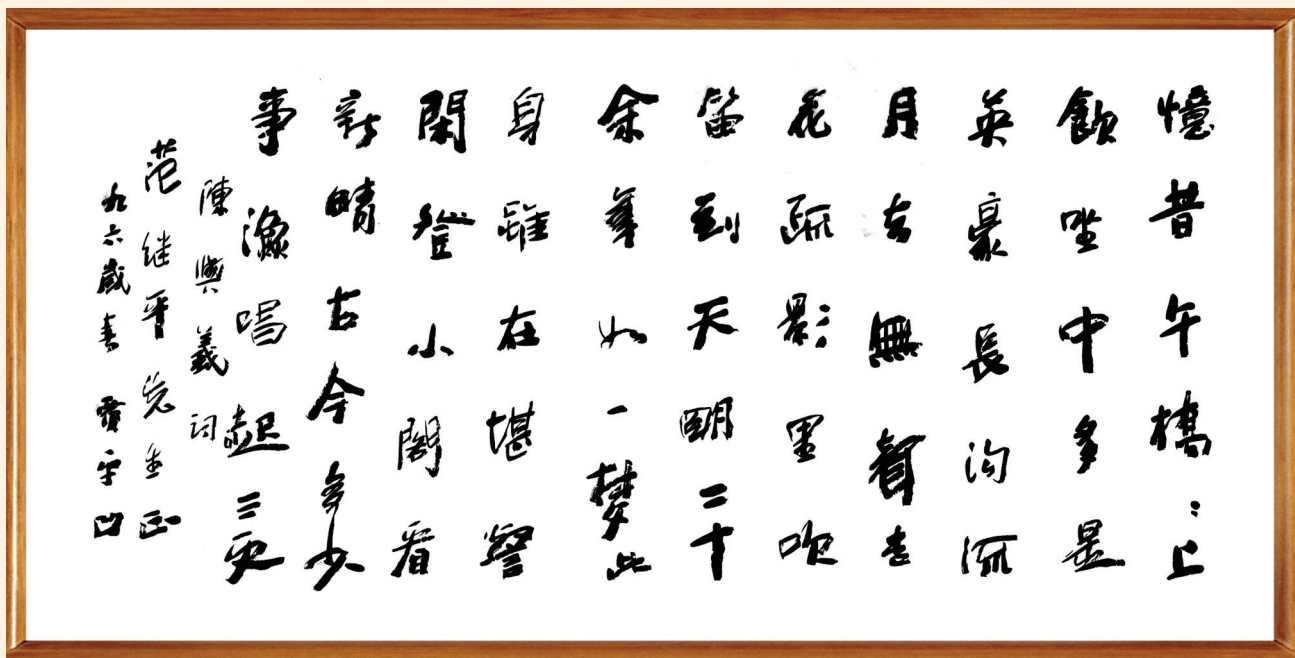 憶昔午橋〻上
飲坐中多是
英豪長沟流
月去無聲杏
花疏影里吹
笛到天明二十
余年如一梦此
身雖在堪驚
閑登小閣看
新晴古今多少
事漁唱起三更
陳與義词
范继晋先生正
九六歲春 賈平凹